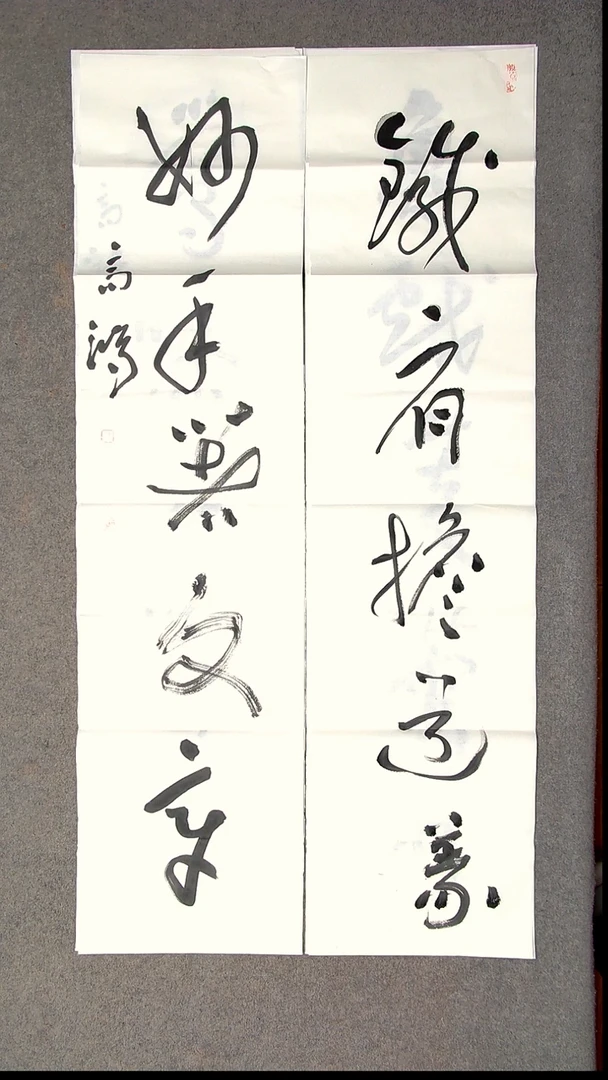 鐵肩擔道義
妙手著文章
高鴻